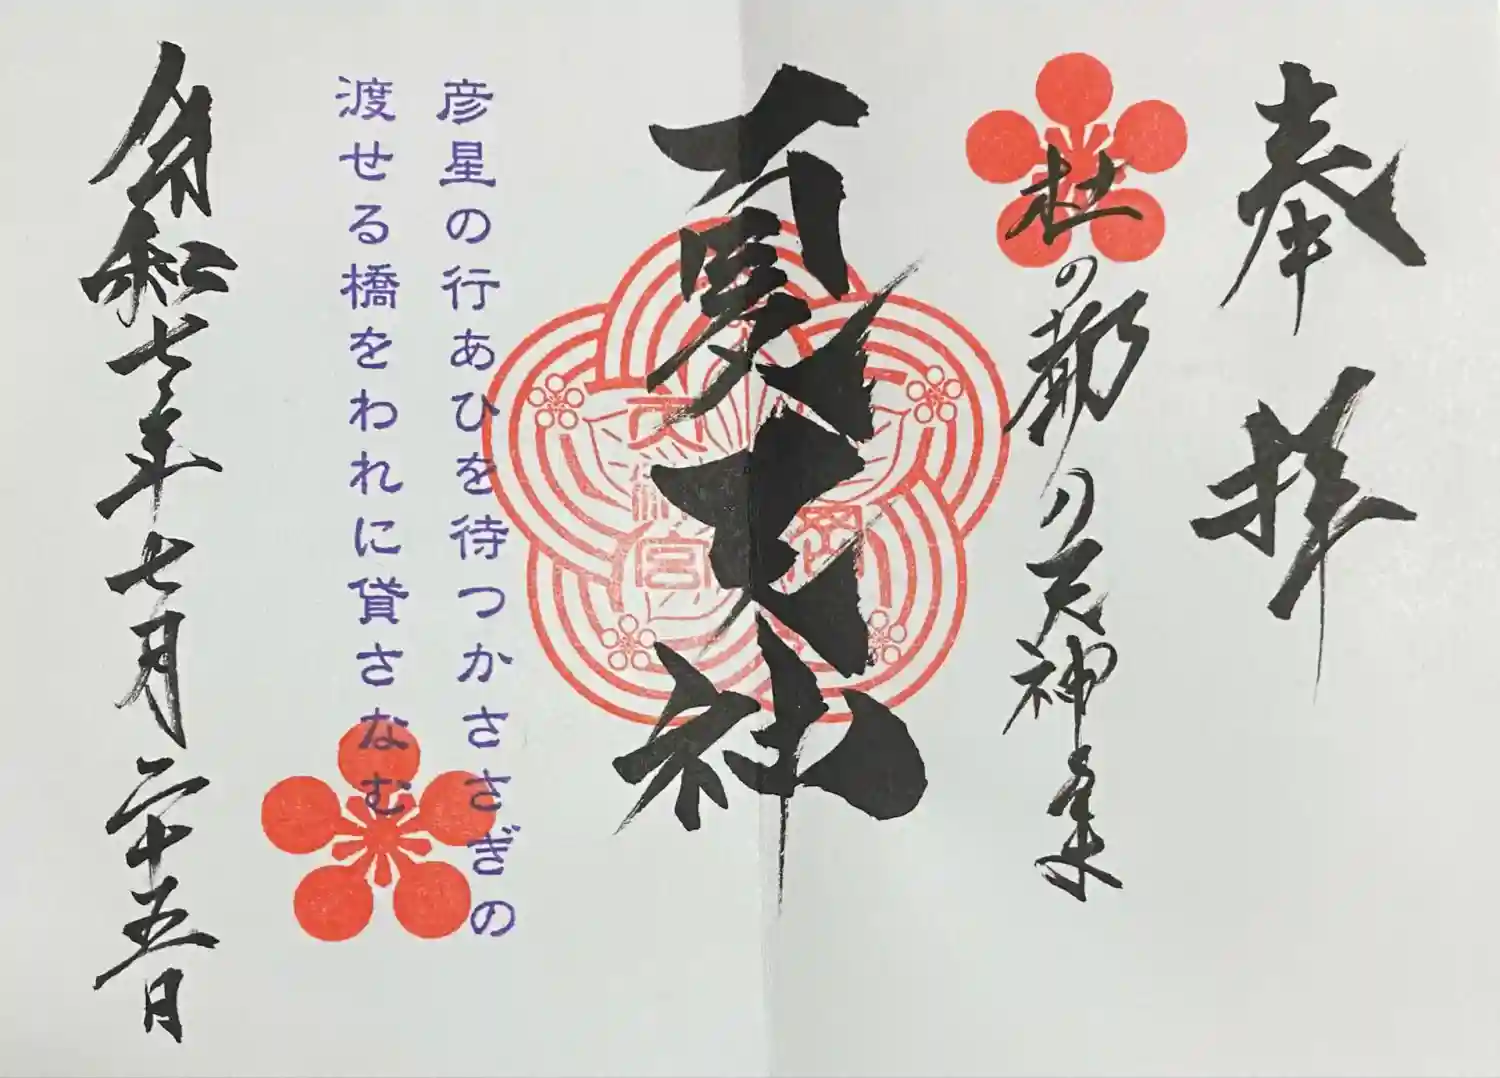 奉拝
杜の都の天神
夏天神
彦星の行あひを待つかささぎの
渡せる橋をわれに貸さなむ
令和七年七月二十五日